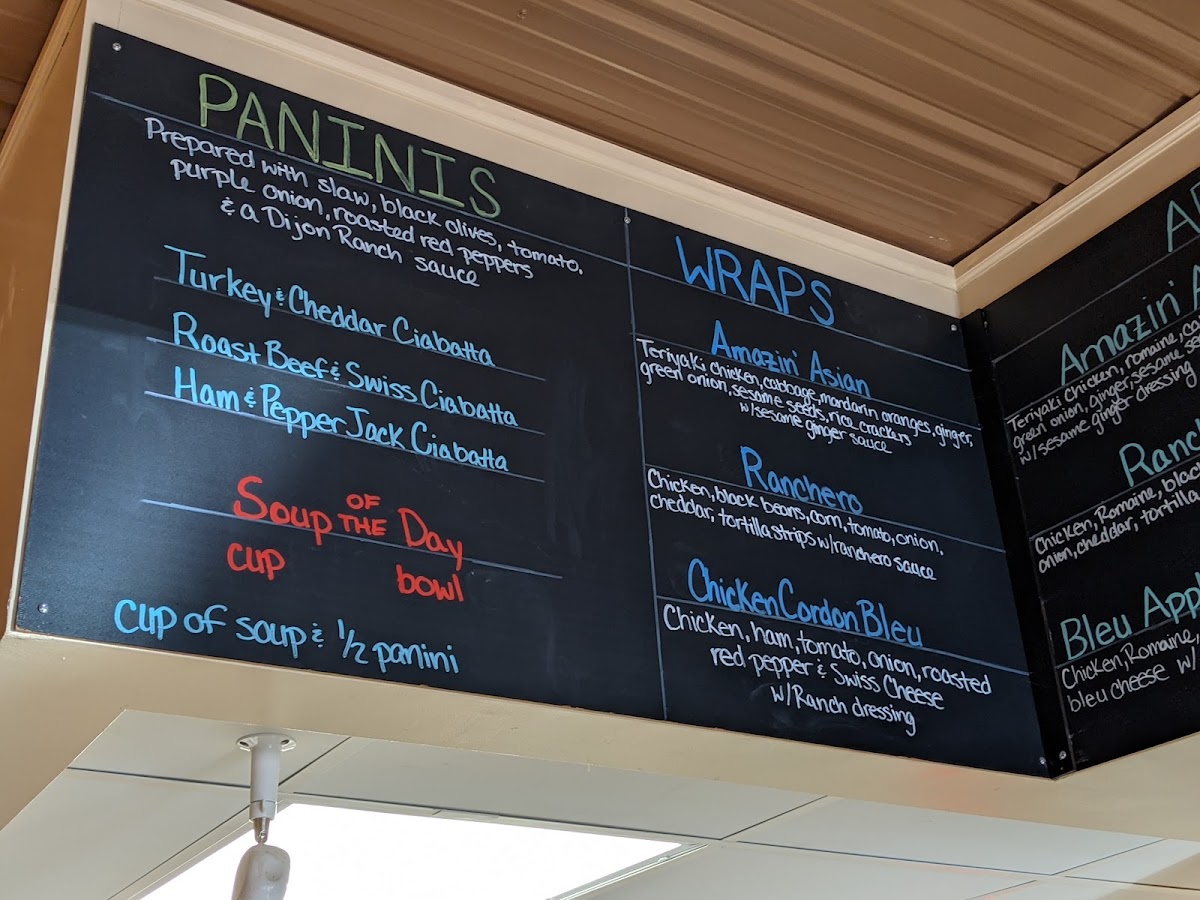 PANINIS
Prepared with slaw, black olives, tomato,
purple onion, roasted red peppers
& a Dijon Ranch sauce
Turkey & Cheddar Ciabatta
Roast Beef & Swiss Ciabatta
Ham & Pepper Jack Ciabatta
Soup OF THE Day
cup bowl
cup of soup & 1/2 panini
WRAPS
Amazin' Asian
Teriyaki chicken, cabbage, mandarin oranges, ginger,
green onion, sesame seeds, rice crackers
w/sesame ginger sauce
Ranchero
Chicken, black beans, corn, tomato, onion,
cheddar, tortilla strips w/ranchero sauce
Chicken Cordon Bleu
Chicken, ham, tomato, onion, roasted
red pepper & Swiss Cheese
w/Ranch dressing
Amazin'
Teriyaki chicken, romaine,
green onion, ginger, sesame
w/sesame ginger dressing
Chicken, Romaine,
onion, cheddar, tortilla
Bleu
Chicken, Romaine,
bleu cheese w/